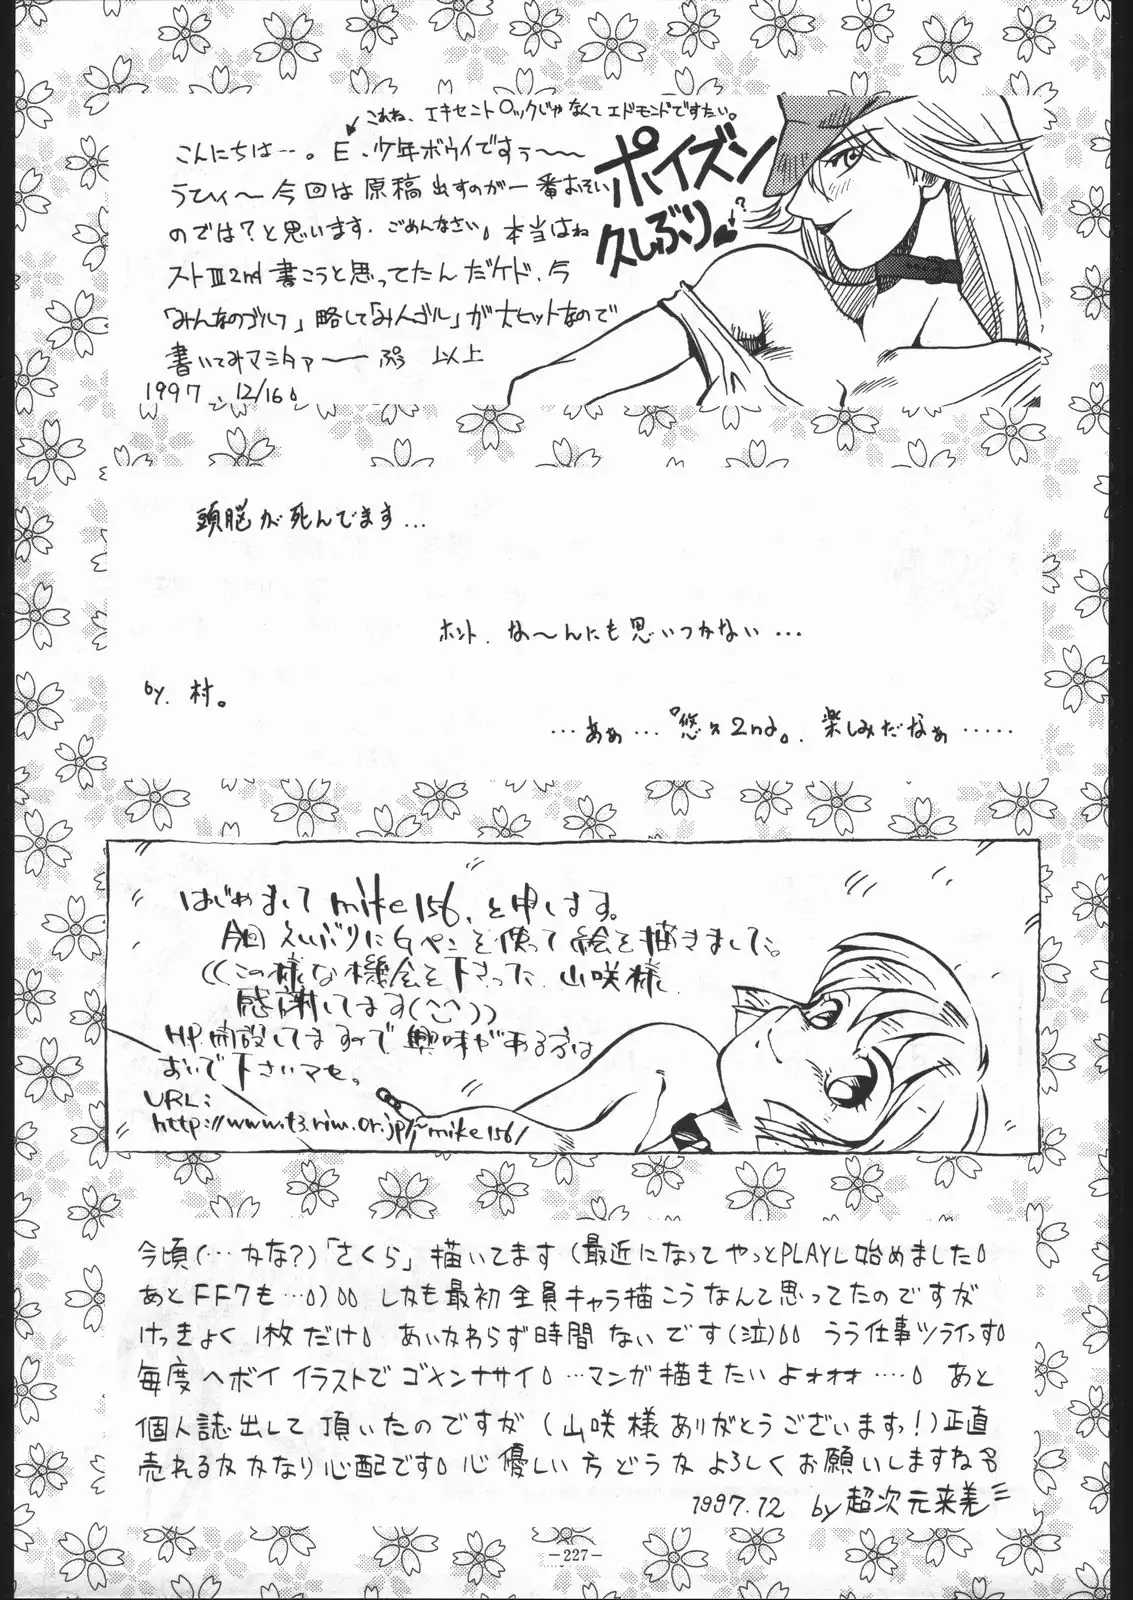 これね、エキセントロックじゃなくてエドモンドですたい。
こんにちは…。E.少年ボウイですぅ〜〜
うひィ〜今回は原稿出すのが一番おそい
のでは?と思います.ごめんなさい。本当はね
ストⅢ2nd書こうと思ってたんだケド、今
「みんなのゴルフ」略して「みんゴル」が大ヒットなので
書いてみマシタァーー ぷぅ 以上
1997.12/16。
ポイズン
久しぶり
?
頭脳が死んでます…
ホント、な〜んにも思いつかない…
by. 村。
…あぁ…『悠久2nd。楽しみだなぁ……
はじめまして mike156、と申します。
今回久しぶりにGペンを使って絵を描きました。
((この様な機会を下さった、山咲様
感謝してます(^^))
HP開設してますので興味がある方は
おいで下さいマセ。
URL:
http://www.t3.rim.or.jp/~mike156/
今頃(…カな?)「さくら」描いてます(最近になってやっとPLAYし始めました。
あとFF7も…。)。。しカも最初全員キャラ描こうなんて思ってたのですが
けっきょく1枚だけ。あいカわらず時間ないです(泣)。。うう仕事ツライっす。
毎度ヘボイイラストでゴメンナサイ。…マンガ描きたいよォォォ…。あと
個人誌出して頂いたのですが(山咲様ありがとうございますっ!)正直
売れるカカなり心配です。心優しい方どうカよろしくお願いしますね
1997.12 by超次元来美
-227-